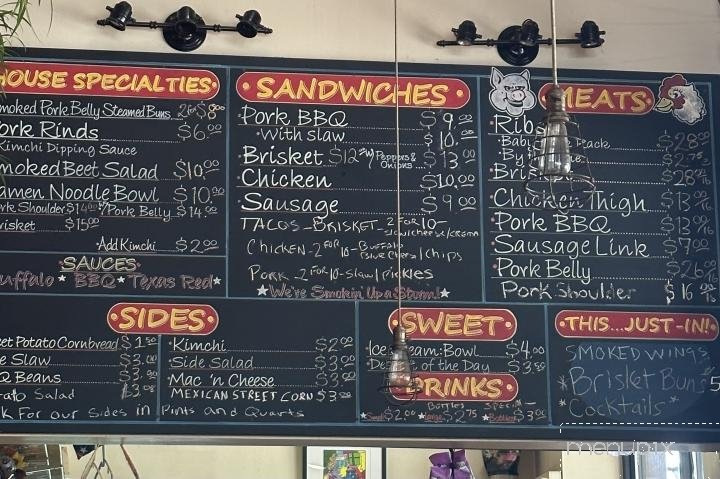 HOUSE SPECIALTIES
Smoked Pork Belly Steamed Buns 2 for $8.00
Pork Rinds $6.00
Kimchi Dipping Sauce
Smoked Beet Salad $10.00
Ramen Noodle Bowl $10.00
Pork Shoulder $14.00 w/ Pork Belly $14.00
Brisket $15.00
Add Kimchi $2.00
SAUCES
Buffalo * BBQ * Texas Red *
SANDWICHES
Pork BBQ $9.00
• With slaw $10.00
Brisket $12 w/ Peppers & Onions $13.00
Chicken $10.00
Sausage $9.00
TACOS - BRISKET - 2 FOR 10 -
CHICKEN - 2 FOR 10 - BUFFALO Blue Cheese/chips
Pork - 2 FOR 10 - slaw/pickles
★ We're Smokin' Up a Storm! ★
MEATS
Ribs
$28
Chicken Thigh $13
Pork BBQ $13
Sausage Link $7.00
Pork Belly $26
Pork Shoulder $16
SIDES
Sweet Potato Cornbread $1.50
Slaw $3.00
BBQ Beans $3.
Potato Salad $3.
Kimchi $2.00
Side Salad $3.00
Mac 'n Cheese $3.
MEXICAN STREET CORN $3
Ask For our Sides in Pints and Quarts
SWEET
Ice Cream: Bowl $4.00
of the Day $3.
DRINKS
Small $2.00 Bottles Large $2.75 Bottled $3.
THIS...JUST-IN!
SMOKED WINGS
*Brisket Buns
*Cocktails*
menupix